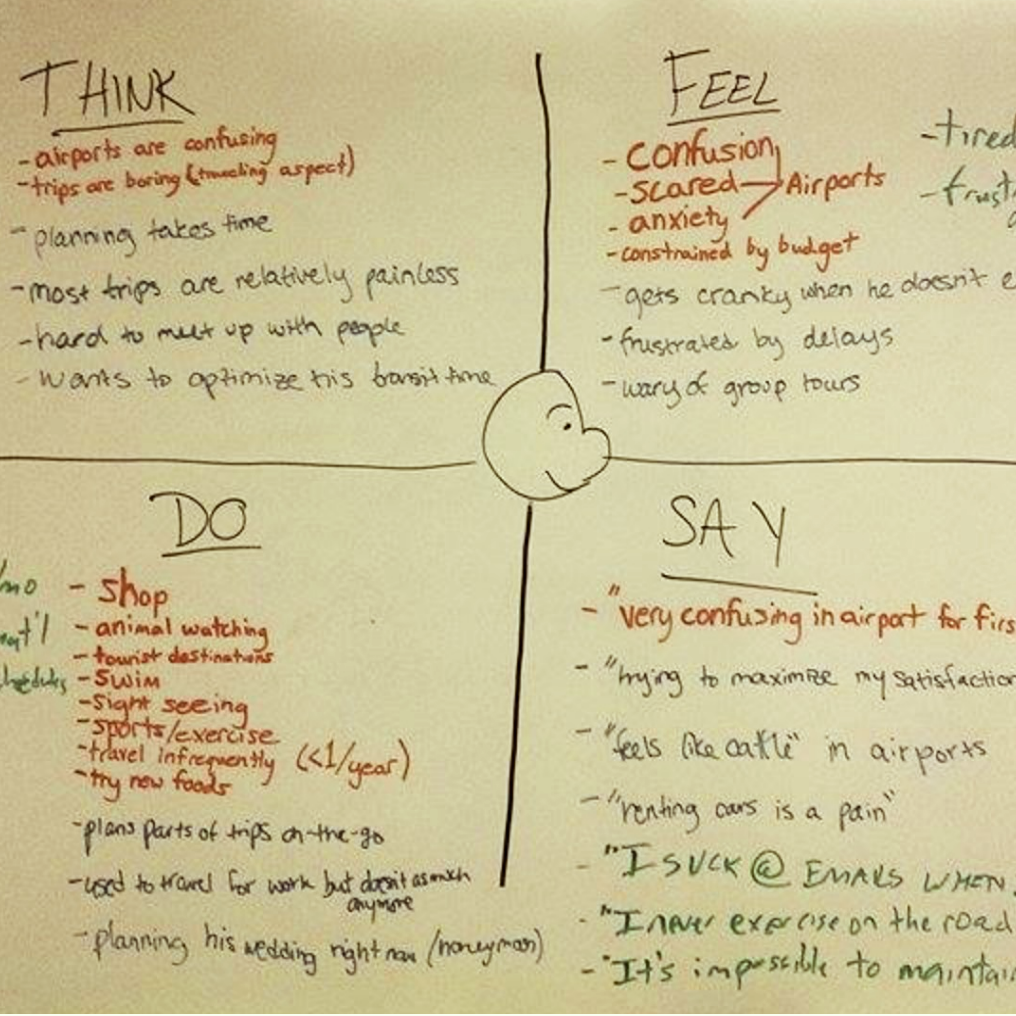 THINK
- airports are confusing
- trips are boring (traveling aspect)
- planning takes time
- most trips are relatively painless
- hard to meet up with people
- wants to optimize his transit time
FEEL
- confusion
- scared → Airports
- anxiety
- constrained by budget
- gets cranky when he doesn't e
- frustrated by delays
- wary of group tours
- tired
- frust
DO
/mo
nat'l
- shop
- animal watching
- tourist destinations
- swim
- sight seeing
- sports/exercise
- travel infrequently (<1/year)
- try new foods
- plans parts of trips on-the-go
- used to travel for work but doesn't as much
anymore
- planning his wedding right now (honeymoon)
SAY
- "very confusing in airport for firs
- "trying to maximize my satisfaction
- "feels like cattle" in airports
- "renting cars is a pain"
- "I SUCK @ EMAILS WHEN
- "I never exercise on the road
- "It's impossible to maintai